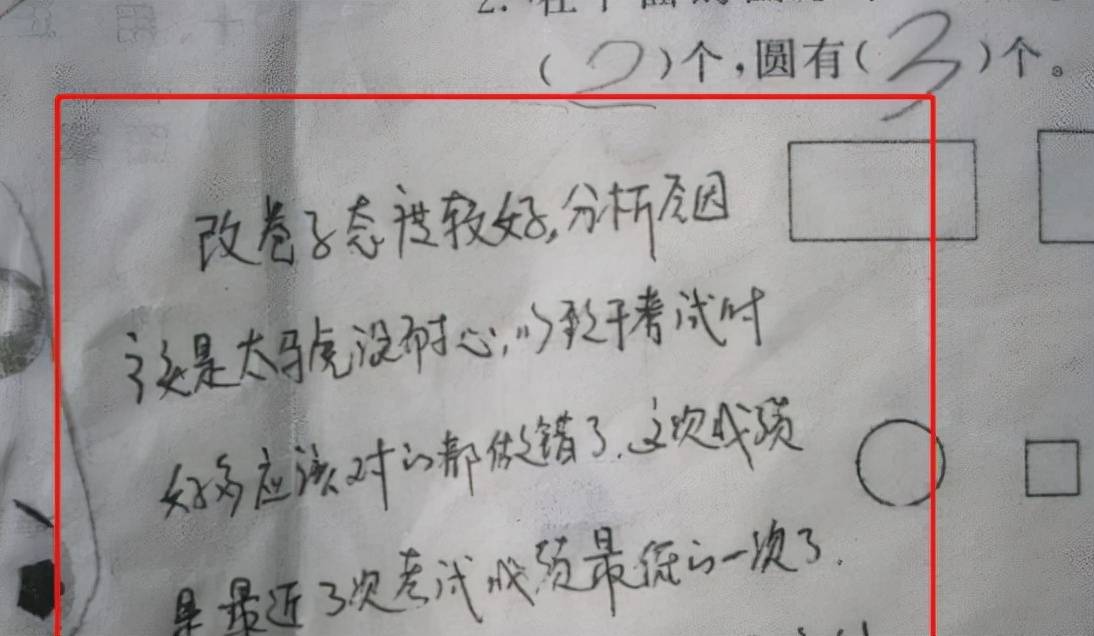 (2)个,圆有(3)个。
改卷子态度较好,分析原因
该是太马虎没耐心,以致于考试时
好多应该对的都做错了.这次成绩
是最近3次考试成绩最低的一次了.